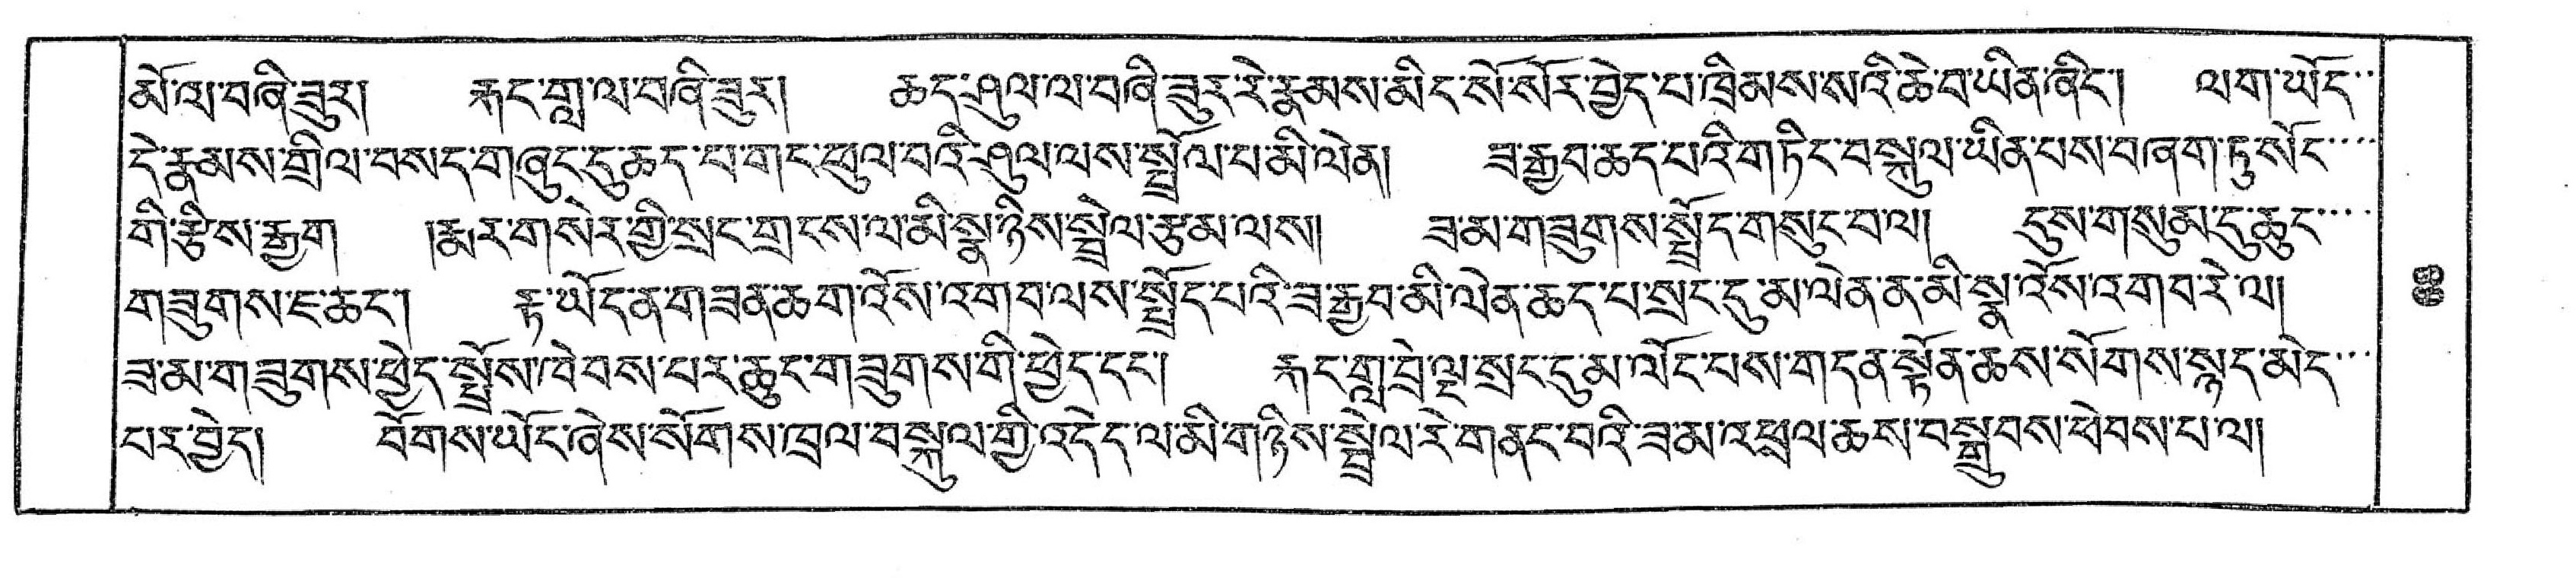 མོ་ལ་བཞི་ཟུར། རྐང་གླ་ལ་བཞི་ཟུར། ཆད་ཤུལ་ལ་བཞི་ཟུར་རེ་རྣམས་མིད་སོ་སོར་བྱེད་པ་ཁྲིམས་སའི་ཆེ་བ་ཡིན་ཞིང་། ལག་ཡོད་་
དེ་རྣམས་གྲིལ་བསད་གཞུང་དུ་ཆད་པ་གང་ཕུལ་བའི་ཤུལ་ལས་སྤྲོལ་པ་མི་ལེན། ཟ་རྒྱབ་ཆད་པའི་གཏིང་བསྐུལ་ཡིན་པས་བཞག་ཏུ་སོང་་་་
གི་རྩིས་རྒྱག །རྨར་གསེར་གྱི་སྲང་གྲངས་ལ་མི་སྣ་ཉིས་སྦྲེལ་ཙམ་ལས། ཟ་མ་གཟུགས་སྤྲོད་གསུང་བ་ལ། དུས་གསུམ་དུ་ཆུང་་་་
གཟུགས་ཇ་ཆང་། རྟ་ཡོད་ན་གཟན་ཆག་འོས་འགབ་ལས་སྤྲོད་པའི་ཟ་རྒྱབ་མི་ལེན་ཆད་པ་སྲང་དུ་མ་ལེན་ན་མི་སྣ་འོས་འགབ་རེ་ལ།
ཟ་མ་གཟུགས་ཕྱེད་སྤྲོས་ཁེབས་པར་ཆུང་གཟུགས་གི་ཕྱེད་དང་། རྐང་གླ་བྲེ་ལྔ་སྲང་དུམ་ལོང་པས་གདན་སྟོན་ཆས་སོགས་སྙད་མེད་་་
པར་བྱེད། བོགས་ཡོང་ཞེས་སོགས་ཁྲལ་བསྐུལ་གྱི་འདེད་ལ་མི་གཉིས་སྦྲེལ་རེ་གནང་བའི་ཟ་མ་འཕྲལ་ཆས་བསྒྲུབས་ཕེབས་པ་ལ།